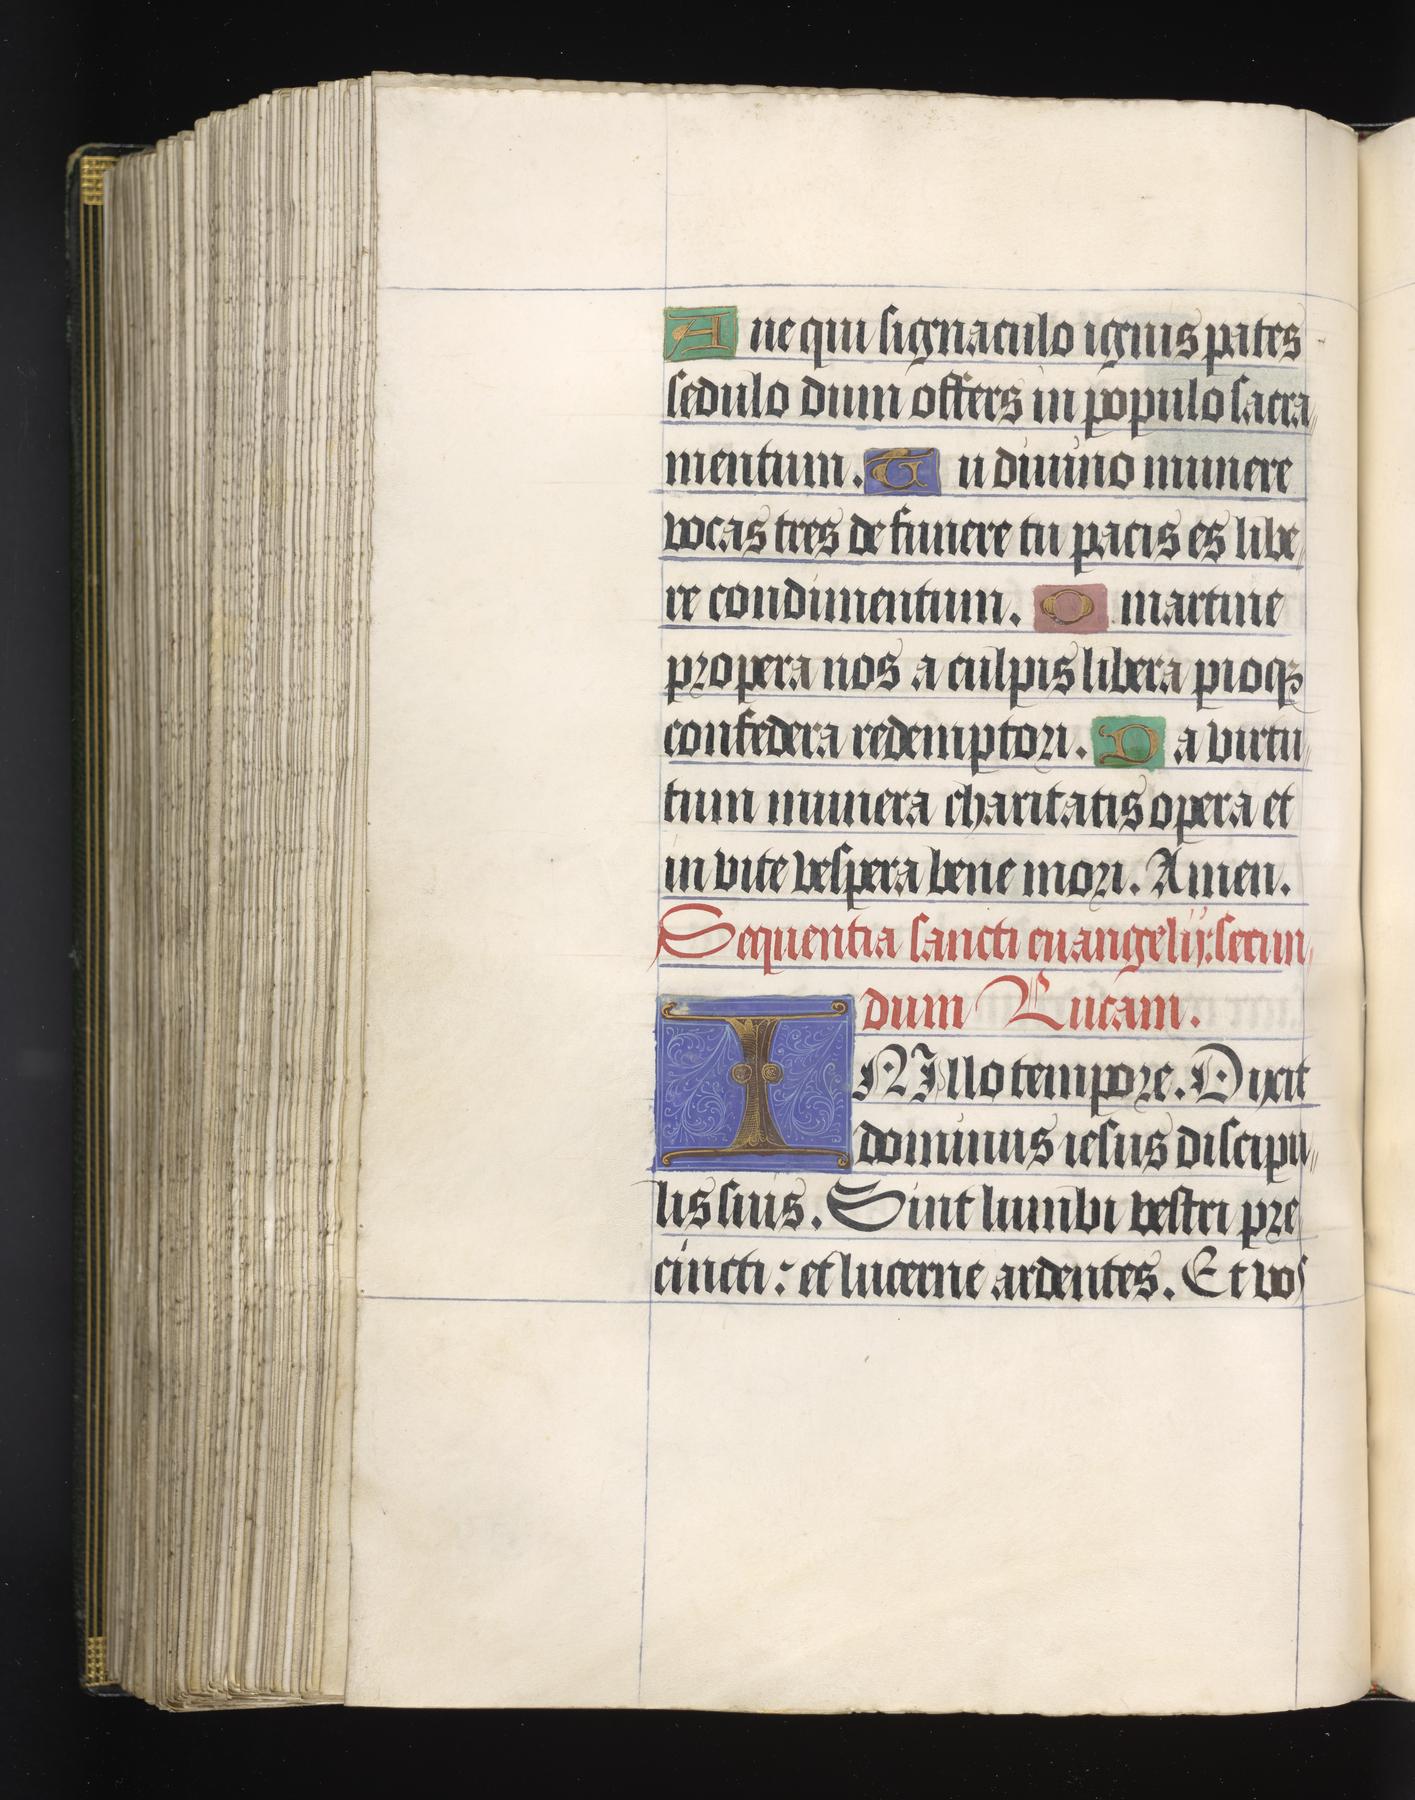 Aue qui signaculo ignis pates
sedulo dum offers in populo sacra„
mentum. Tu diuino munere
vocas tres de funere tu pacis es libe„
re condimentum. O martine
propera nos a culpis libera pioqꝫ
confedera redemptori. Da virtu„
tum munera charitatis opera et
in vite vespera bene mori. Amen.
Sequentia sancti euangelij: secun„
dum Lucam.
IN Illo tempore. Dixit
dominus iesus discipu„
lis suis. Sint lumbi vestri pre
cincti: et lucerne ardentes. Et vos